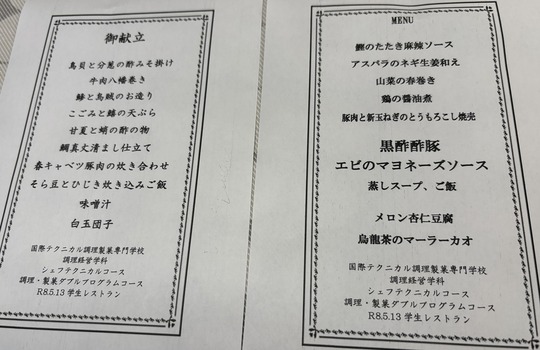 御献立
鳥貝と分葱の酢みそ掛け
牛肉八幡巻き
鯵と烏賊のお造り
こごみと鱚の天ぷら
甘夏と蛸の酢の物
鯛真丈清まし仕立て
春キャベツ豚肉の炊き合わせ
そら豆とひじき炊き込みご飯
味噌汁
白玉団子
国際テクニカル調理製菓専門学校
調理経営学科
シェフテクニカルコース
調理・製菓ダブルプログラムコース
R8.5.13 学生レストラン
MENU
鰹のたたき麻辣ソース
アスパラのネギ生姜和え
山菜の春巻き
鶏の醤油煮
豚肉と新玉ねぎのとうもろこし焼売
黒酢酢豚
エビのマヨネーズソース
蒸しスープ、ご飯
メロン杏仁豆腐
烏龍茶のマーラーカオ
国際テクニカル調理製菓専門学校
調理経営学科
シェフテクニカルコース
調理・製菓ダブルプログラムコース
R8.5.13 学生レストラン